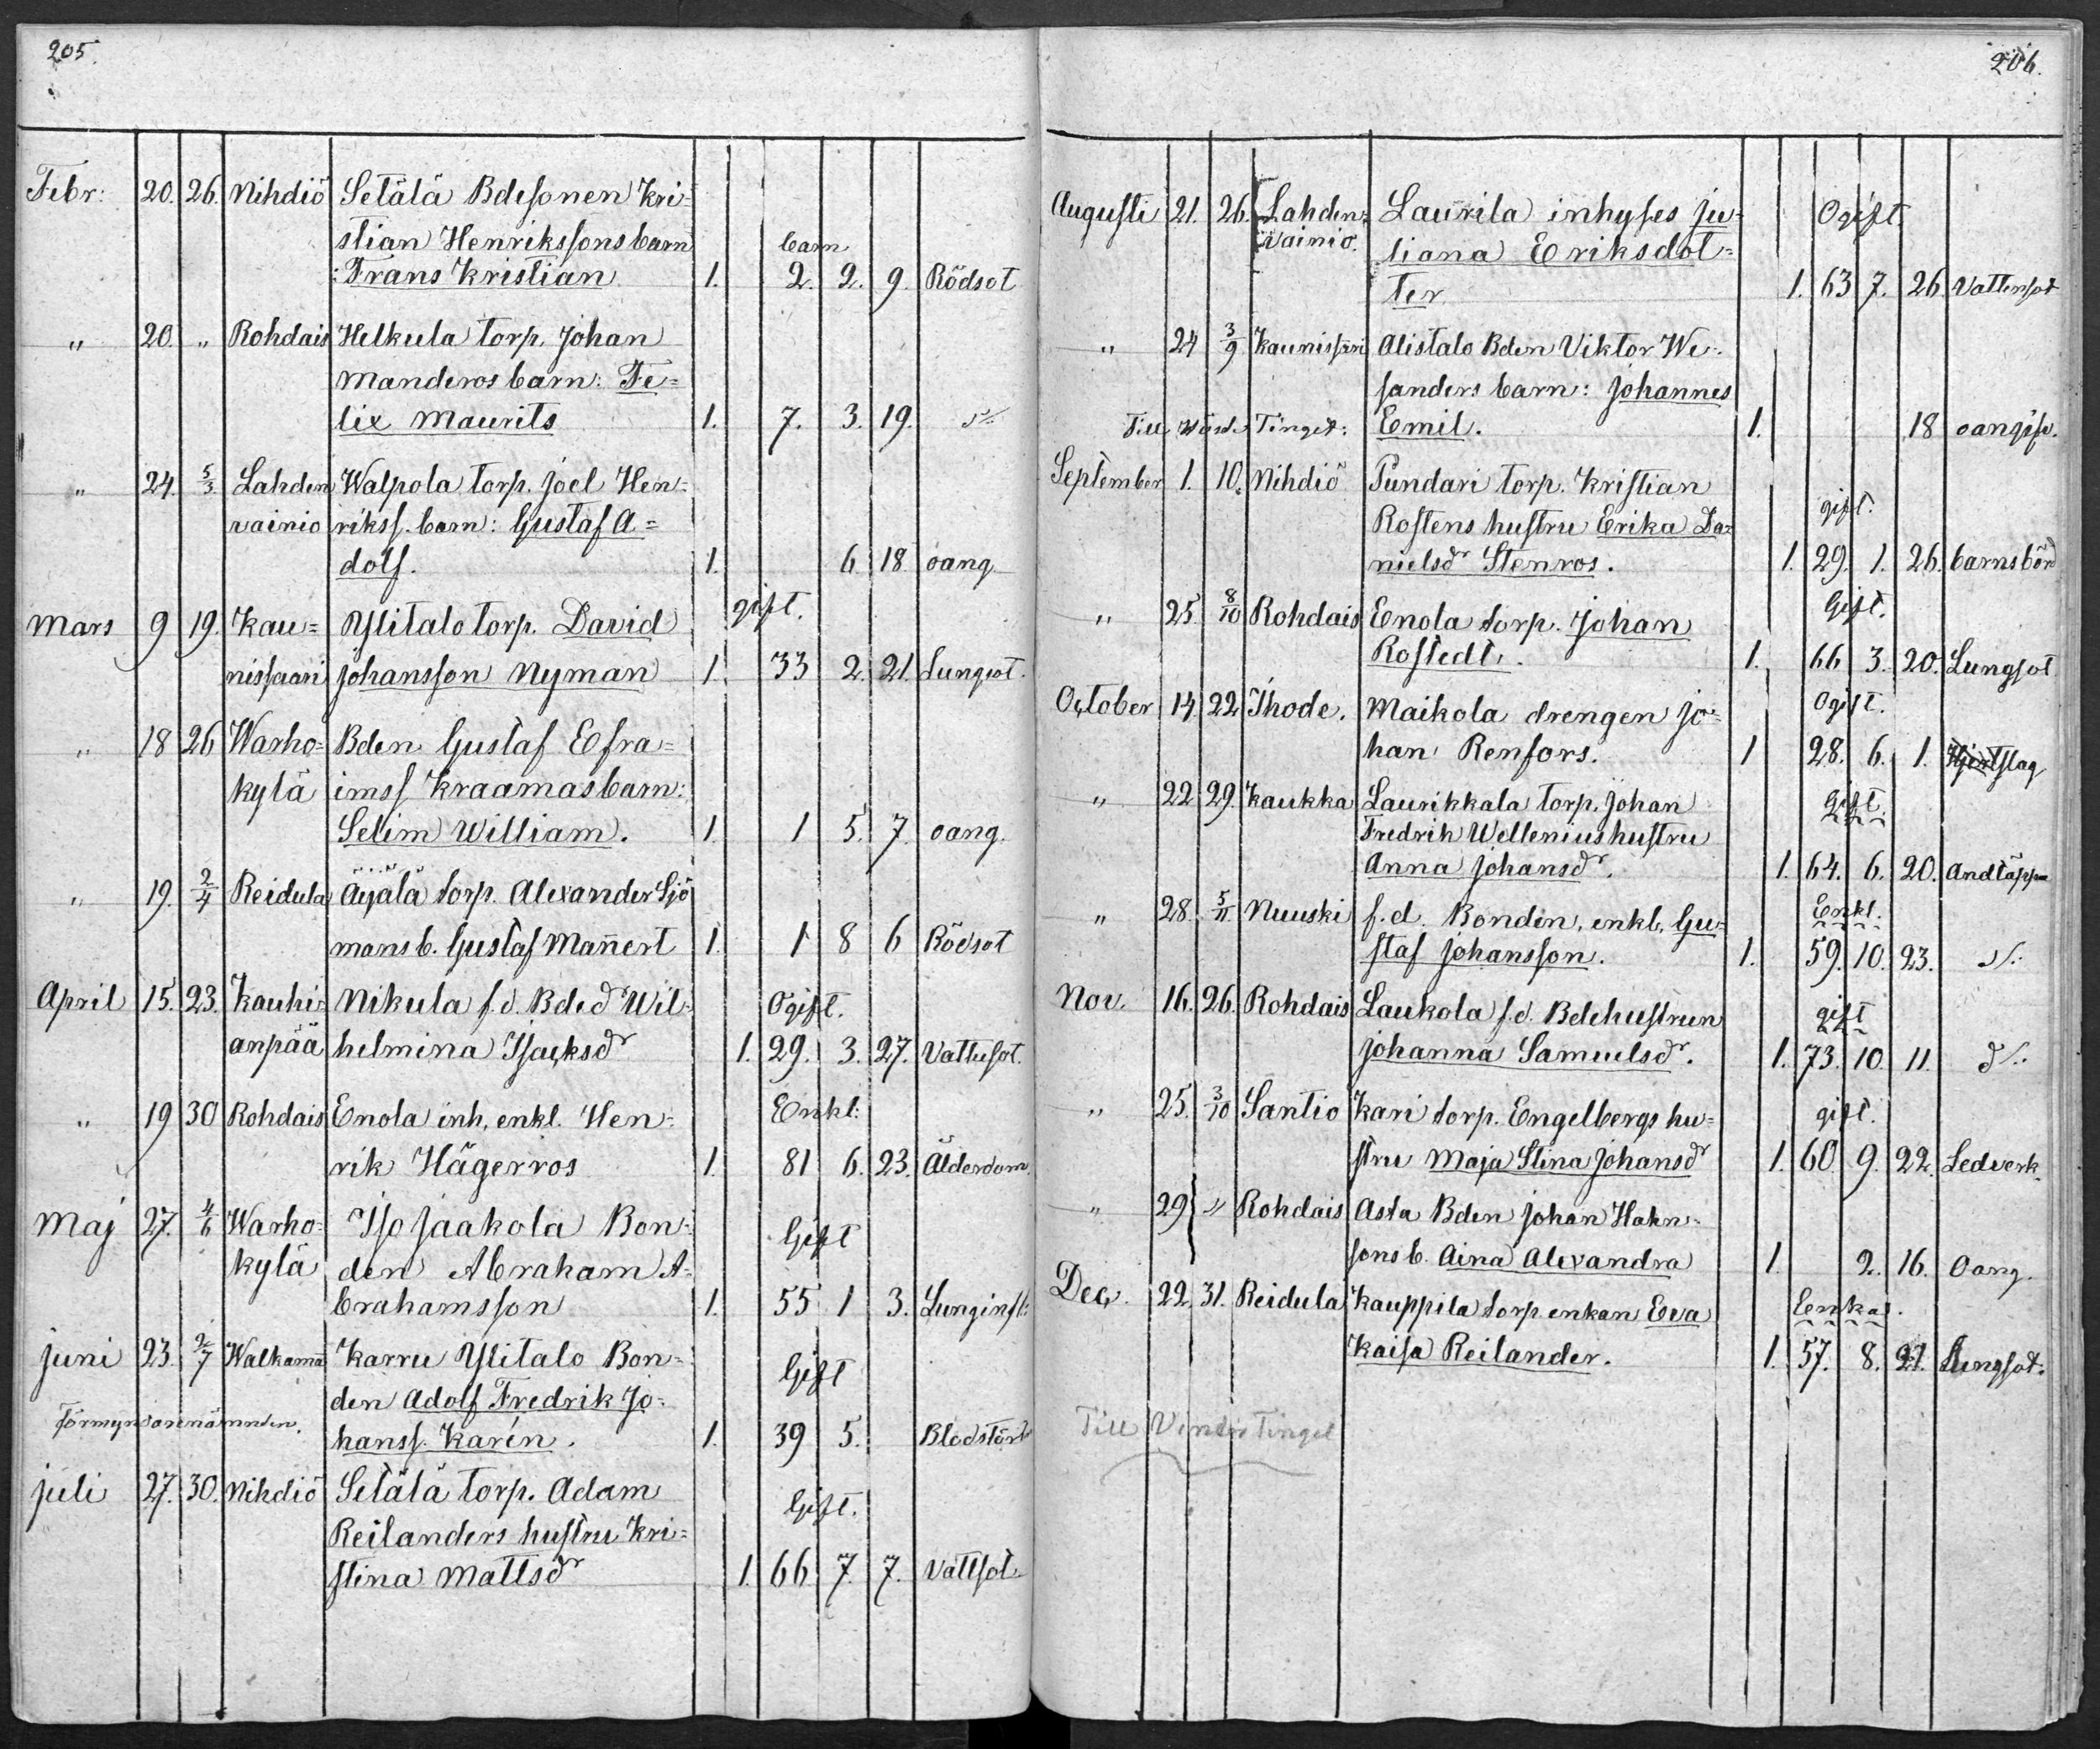 205.
Febr: 20. 26. Nihdiö Setälä Bdesonen Kri-
stian Henrikssons barn barn
: Frans Kristian 1. 2. 2. 9. Rödsot
" 20. " Rohdais Helkula torp. Johan
Manderos barn: Fe=
lix Maurits 1. 7. 3. 19.
" 24. 5/3. Lahden Walpola torp. Joel Hen-
vainio rikss. barn: Gustaf A=
dolf. 1. 6. 18 oang
Mars 9 19. Kau= Ylitalo torp. David gift.
nissaari Johansson Nyman 1. 33 2. 21. Lungsot.
" 18 26 Warho= Bden Gustaf Efra=
kylä imss Kraamas barn:
Selim William. 1. 1 5. 7. oang.
" 19. 2/4 Reidula Äyälä torp. Alexander Sjö
mans b. Gustaf Mañert 1. 1 8 6 Rödsot
April 15. 23. Kauhi- Nikula f.d. Bded Wil- Ogift.
anpää helmina Isacksdr 1. 29. 3. 27. Vattusot.
" 19 30 Rohdais Enola inh. enkl. Hen- Enkl:
rik Hägerros 1. 81 6. 23. Ålderdom.
Maj 27. 4/6 Warho- Iso Jaakola Bon- Gift
kylä den Abraham A-
brahamsson 1. 55 1 3. Lunginfl:
Juni 23. 2/7 Walkama Karru Ylitalo Bon- Gift
den Adolf Fredrik Jo-
Förmyndarenämnden. hanss. Karén. 1. 39 5. Blodstört
Juli 27. 30. Nihdiö Setälä torp. Adam Gift.
Reilanders hustru Kri=
stina Mattsdr 1. 66 7. 7. Vattsot
206.
Augusti 21. 26. Lahden- Laurila inhyses Ju- Ogift.
vainio. liana Eriksdot=
ter 1. 63 7. 26. Vattensot
" 24 3/9 Kaunissari Alistalo Bden Viktor We-
sanders barn: Johannes
Till Tinget: Emil. 1. 18 oangif.
September 1. 10. Nihdiö Pundari torp. Kristian gift.
Rostens hustru Erika Da=
nielsdr Stenros. 1. 29. 1. 26. barnsbörd
" 25 8/10 Rohdais Enola torp. Johan Gift.
Rostedt. 1. 66 3. 20. Lungsot
October 14 22 Thode. Maikola drengen Jo- Ogift.
han Renfors. 1 28. 6. 1. Hjertslag
" 22 29. Kaukka Laurikkala torp. Johan gift.
Fredrik Wellenius hustru
Anna Johansdr. 1. 64. 6. 20. Andtäppa
" 28. 5/11. Nuuski f.d. Bonden, enkl. Gu= Enkl.
staf Johansson. 1. 59. 10. 23.
Nov. 16. 26. Rohdais Laukola f.d. Bdehustrun gift
Johanna Samuelsdr. 1. 73. 10 11. d/:
" 25. 3/10 Santio Kari torp. Engelbergs hu= gift.
stru Maja Stina Johansdr 1. 60. 9. 22. Ledverk.
" 29 " Rohdais Asta Bden Johan Hahn-
sons b. Aina Alexandra 1. 2. 16. Oang.
Dec. 22. 31. Reidula Kauppila torp. enkan Eva Enka.
Kaisa Reilander. 1. 57. 8. 21. Lungsot.
Till Vinter Tinget